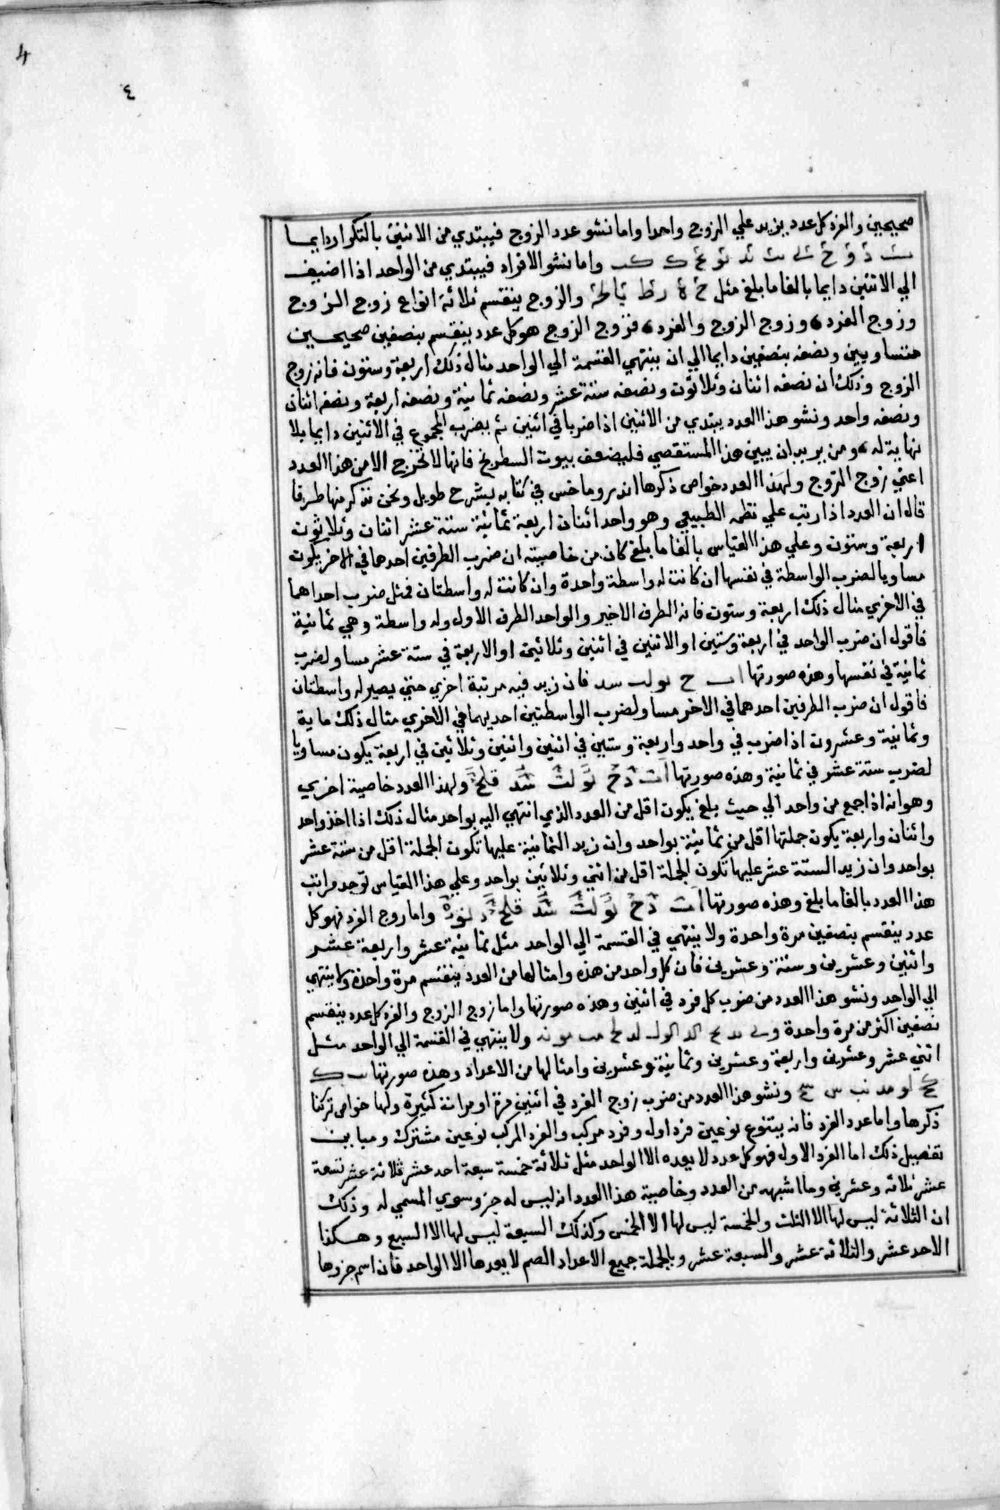 4
٤
صحيحين والفرد كل عدد يزيد علي الزوج واحدا واما نشو عدد الزوج فيبتدي من الاثنين بالتكرار دايما
واما نشو الافراد فيبتدي من الواحد اذا اضيف
الي الاثنين دايما بالغا ما بلغ مثل والزوج ينقسم ثلاثة انواع زوج الزوج
وزوج الفرد وزوج الزوج والفرد فزوج الزوج هو كل عدد ينقسم بنصفين صحيحين
متساويين ونصفه بنصفين دايما الي ان ينتهي القسمة الي الواحد مثال ذلك اربعة وستون فانه زوج
الزوج وذلك ان نصفه اثنان وثلاثون ونصفه ستة عشر ونصفه ثمانية ونصفه اربعة ونصفه اثنان
ونصفه واحد ونشو هذا العدد يبتدي من الاثنين اذا ضربا في اثنين ثم يضرب المجموع في الاثنين دايما بلا
نهاية له ومن يريد ان يبين هذا المستقصي فليضعف بيوت السطرنج فانها لا تخرج الا من هذا العدد
اعني زوج الزوج ولهذا العدد خواص ذكرها اندروماخس في كتابه بشرح طويل ونحن نذكر منها طرفا
قال ان العدد اذا رتب علي نظمه الطبيعي وهو واحد اثنان اربعة ثمانية ستة عشر اثنان وثلاثون
اربعة وستون وعلي هذا القياس بالغا ما بلغ كان من خاصيته ان ضرب الطرفين احدهما في الاخر يكون
مساويا لضرب الواسطة في نفسها ان كانت له واسطة واحدة وان كانت له واسطتان فمثل ضرب احداهما
في الاخري مثال ذلك اربعة وستون فانه الطرف الاخير والواحد الطرف الاول وله واسطة وهي ثمانية
فاقول ان ضرب الواحد في اربعة وستين او الاثنين في اثنين وثلاثين او الاربعة في ستة عشر مساو لضرب
ثمانية في نفسها وهذه صورتها ا ب ح يو لب سد فان زيد فيه مرتبة اخري حتي يصير له واسطتان
فاقول ان ضرب الطرفين احدهما في الاخر مساو لضرب الواسطتين احديهما في الاخري مثال ذلك ماية
وثمانية وعشرون اذا ضرب في واحد واربعة وستين في اثنين واثنين وثلاثين في اربعة يكون مساويا
لضرب ستة عشر في ثمانية وهذه صورتها ا ب د ح يو لب سد قكح ولهذا العدد خاصية اخري
وهو انه اذا جمع من واحد الي حيث بلغ يكون اقل من العدد الذي انتهي اليه بواحد مثال ذلك اذا اخذ واحد
واثنان واربعة يكون جملتها اقل من ثمانية بواحد وان زيد الثمانية عليها تكون الجملة اقل من ستة عشر
بواحد وان زيد الستة عشر عليها تكون الجملة اقل من اثني وثلاثين بواحد وعلي هذا القياس توجد مراتب
هذا العدد بالغا ما بلغ وهذه صورتها ا ب د ح يو لب سد قكح واما زوج الفرد فهو كل
عدد ينقسم بنصفين مرة واحدة ولا ينتهي في القسمة الي الواحد مثل ثمانية عشر واربعة عشر
واثنين وعشرين وستة وعشرين فان كل واحد من هذه وامثالها من العدد ينقسم مرة واحدة ولا ينتهي
الي الواحد ونشو هذا العدد من ضرب كل فرد في اثنين وهذه صورتها واما زوج الزوج والفرد كل عدد ينقسم
نصفين اكثر من مرة واحدة ولا ينتهي في القسمة الي الواحد مثل
اثني عشر وعشرين واربعة وعشرين وثمانية وعشرين وامثالها من الاعداد وهذه صورتها يب ك
كح لو مد نب س ونشو هذا العدد من ضرب زوج الفرد في اثنين مرة او مرات كثيرة ولها خواص تركنا
ذكرها واما عدد الفرد فانه يتنوع نوعين فرد اول وفرد مركب والفرد المركب نوعين مشترك ومباين
تفصيل ذلك اما الفرد الاول فهو كل عدد لا يعده الا الواحد مثل ثلاثة خمسة سبعة احد عشر ثلاثة عشر تسعة
عشر ثلاثه وعشرين وما اشبهه من العدد وخاصية هذا العدد انه ليس له جزو سوي المسمي له وذلك
ان الثلاثة ليس لها الا الثلث والخمسة ليس لها الا الخمس وكذلك السبعة ليس لها الا السبع وهكذا
الاحد عشر والثلاثة عشر والسبعة عشر وبالجملة جميع الاعداد الصم لا يعدها الا الواحد فان اسم جزوها